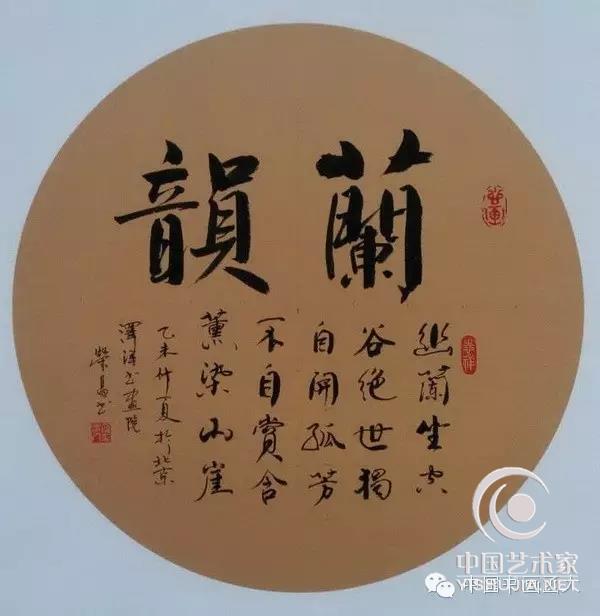 蘭韻
幽蘭生空
谷絕世獨
自開孤芳
不自賞含
薰染山崖
乙未仲夏於北京
書畫院
榮昌书
中国艺术家